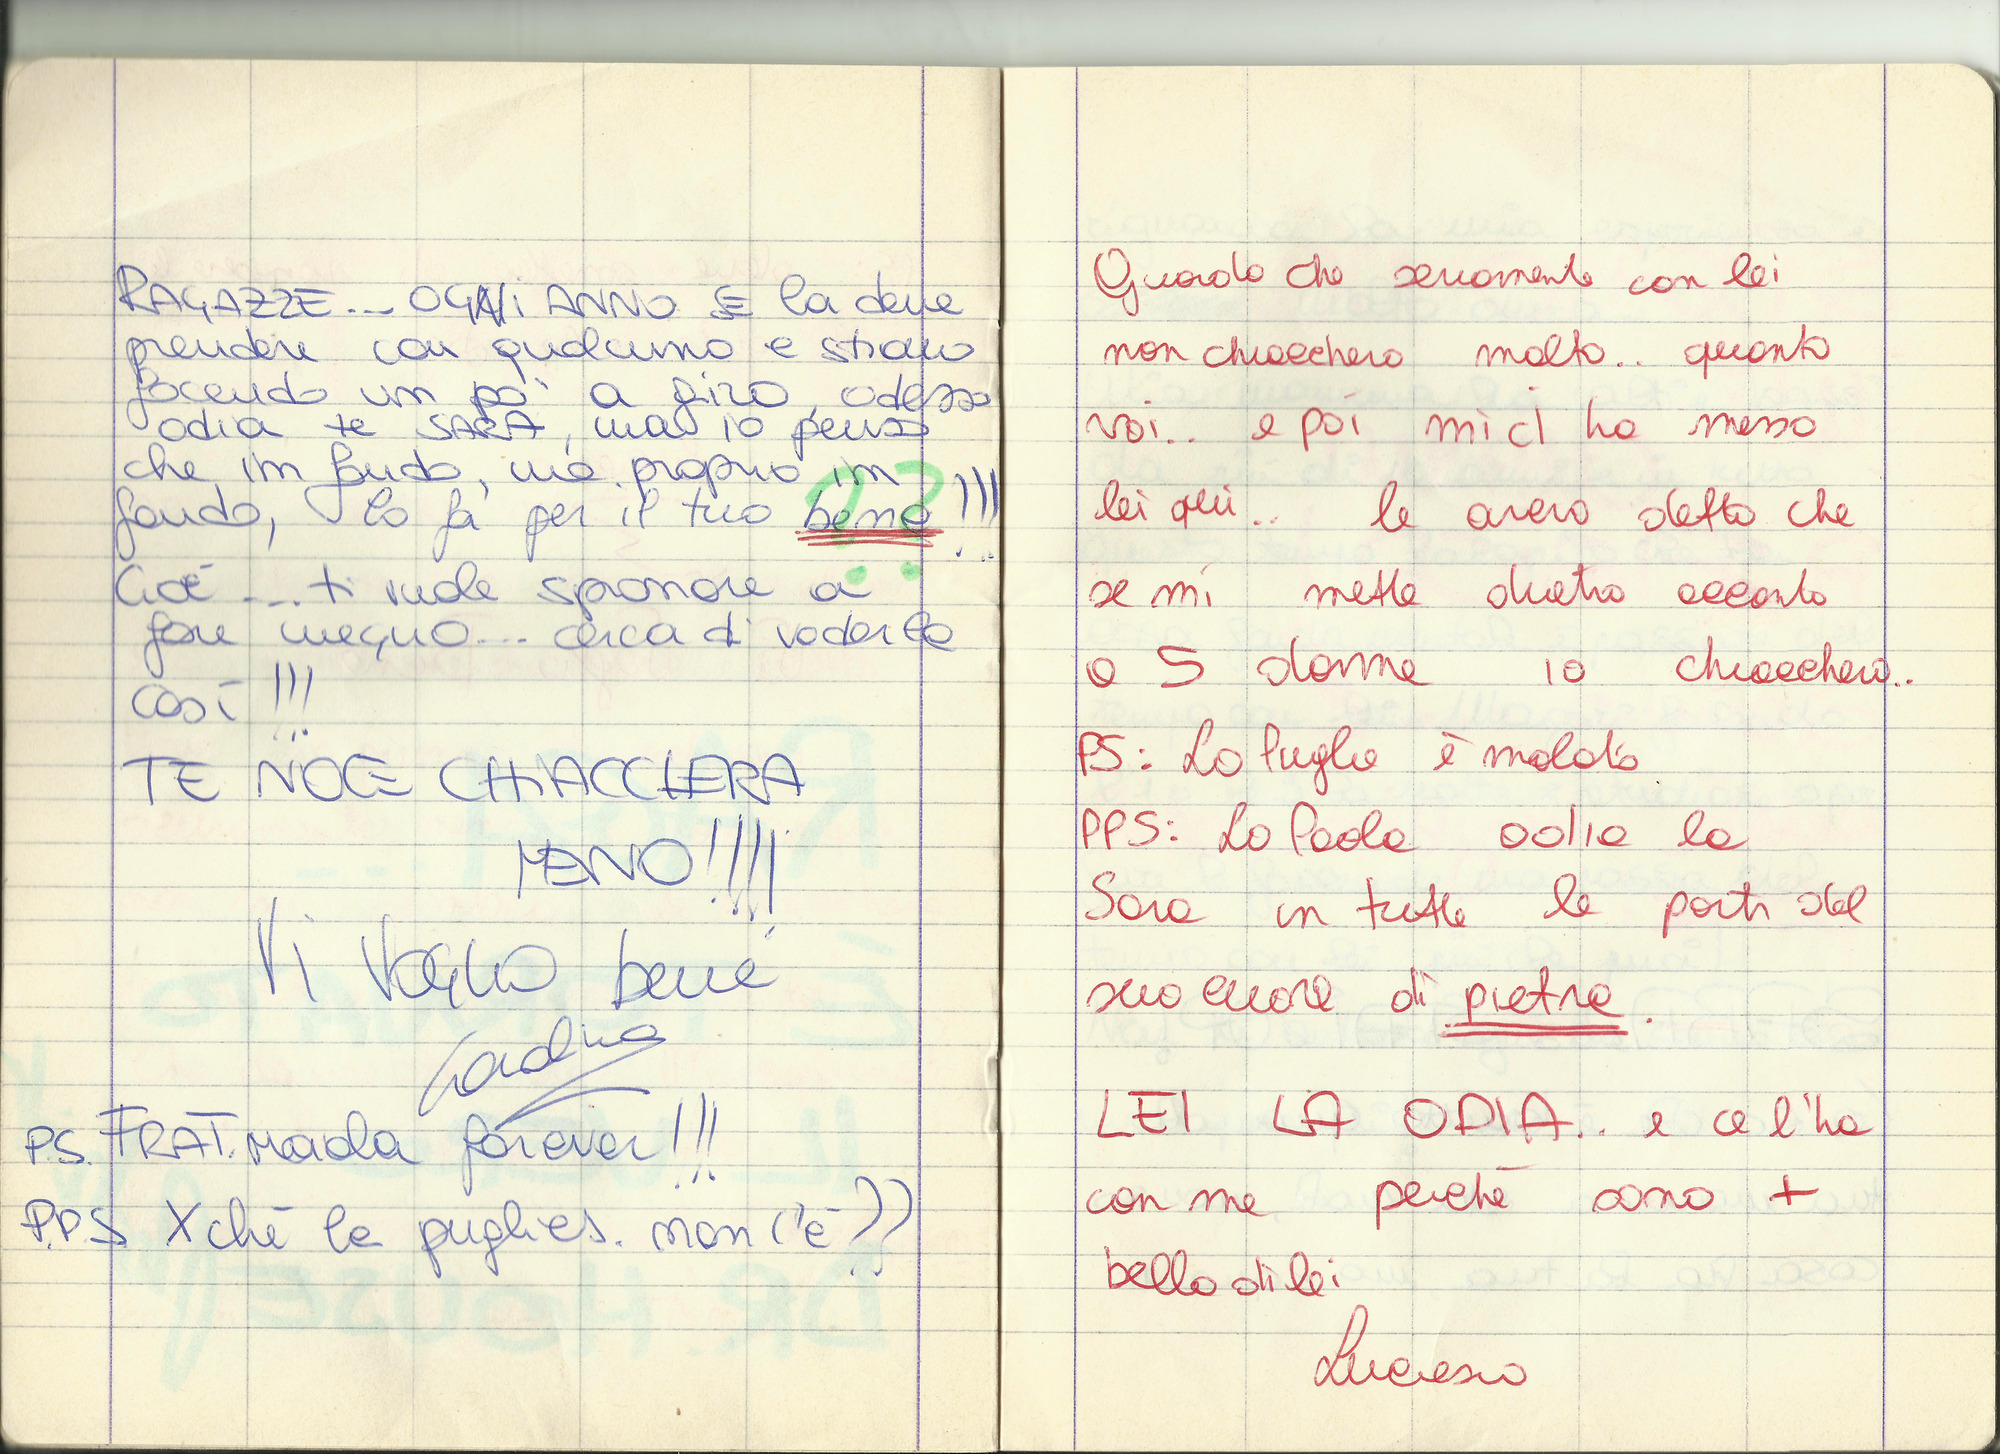 RAGAZZE... OGNI ANNO SE la deve
prendere con qualcuno e stiamo
facendo un pò a giro, adesso
odia te SARA, ma io penso
che im fondo, ma proprio im
fondo, lo fà per il tuo bene!!!
??
Cioè .... ti vuole spronare a
fare meglio... cerca di vederla
così!!!
TE NOCE CHIACCIERA
MENO!!!!
Vi voglio bene
P.S. FRAT. Mada forever!!!
P.P.S Xchè la puglies. non c'è??
Guarda che seriamente con lei
non chiacchero molto.. quanto
voi.. e poi mi ci ha messo
lei qui.. le avevo detto che
se mi mette dietro accanto
a 5 donne io chiacchero..
PS: La Puglie è malata
PPS: La Paola odia la
Sara in tutte le parti del
suo cuore di pietra.
LEI LA ODIA.. e ce l'ha
con me, perchè sono +
bella di lei